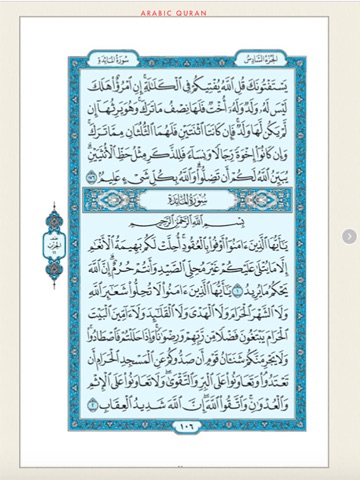 ARABIC QURAN
سُورَةُ المَائـِدَة
الجُزءُ السَّادِسُ
يَسْتَفْتُونَكَ قُلِ ٱللَّهُ يُفْتِيكُمْ فِى ٱلْكَلَـٰلَةِ إِنِ ٱمْرُؤٌا۟ هَلَكَ
لَيْسَ لَهُۥ وَلَدٌ وَلَهُۥٓ أُخْتٌ فَلَهَا نِصْفُ مَا تَرَكَ وَهُوَ يَرِثُهَآ إِن
لَّمْ يَكُن لَّهَا وَلَدٌ فَإِن كَانَتَا ٱثْنَتَيْنِ فَلَهُمَا ٱلثُّلُثَانِ مِمَّا تَرَكَ
وَإِن كَانُوٓا۟ إِخْوَةً رِّجَالًا وَنِسَآءً فَلِلذَّكَرِ مِثْلُ حَظِّ ٱلْأُنثَيَيْنِ
يُبَيِّنُ ٱللَّهُ لَكُمْ أَن تَضِلُّوا۟ وَٱللَّهُ بِكُلِّ شَىْءٍ عَلِيمٌۢ ١٧٦
سُورَةُ المَائـِدَة
بِسْمِ ٱللَّهِ ٱلرَّحْمَـٰنِ ٱلرَّحِيمِ
يَـٰٓأَيُّهَا ٱلَّذِينَ ءَامَنُوٓا۟ أَوْفُوا۟ بِٱلْعُقُودِ أُحِلَّتْ لَكُم بَهِيمَةُ ٱلْأَنْعَـٰمِ
إِلَّا مَا يُتْلَىٰ عَلَيْكُمْ غَيْرَ مُحِلِّى ٱلصَّيْدِ وَأَنتُمْ حُرُمٌ إِنَّ ٱللَّهَ
يَحْكُمُ مَا يُرِيدُ ١ يَـٰٓأَيُّهَا ٱلَّذِينَ ءَامَنُوا۟ لَا تُحِلُّوا۟ شَعَـٰٓئِرَ ٱللَّهِ
وَلَا ٱلشَّهْرَ ٱلْحَرَامَ وَلَا ٱلْهَدْىَ وَلَا ٱلْقَلَـٰٓئِدَ وَلَآ ءَآمِّينَ ٱلْبَيْتَ
ٱلْحَرَامَ يَبْتَغُونَ فَضْلًا مِّن رَّبِّهِمْ وَرِضْوَٰنًا وَإِذَا حَلَلْتُمْ فَٱصْطَادُوا۟
وَلَا يَجْرِمَنَّكُمْ شَنَـَٔانُ قَوْمٍ أَن صَدُّوكُمْ عَنِ ٱلْمَسْجِدِ ٱلْحَرَامِ أَن
تَعْتَدُوا۟ وَتَعَاوَنُوا۟ عَلَى ٱلْبِرِّ وَٱلتَّقْوَىٰ وَلَا تَعَاوَنُوا۟ عَلَى ٱلْإِثْمِ
وَٱلْعُدْوَٰنِ وَٱتَّقُوا۟ ٱللَّهَ إِنَّ ٱللَّهَ شَدِيدُ ٱلْعِقَابِ ٢
١٠٦